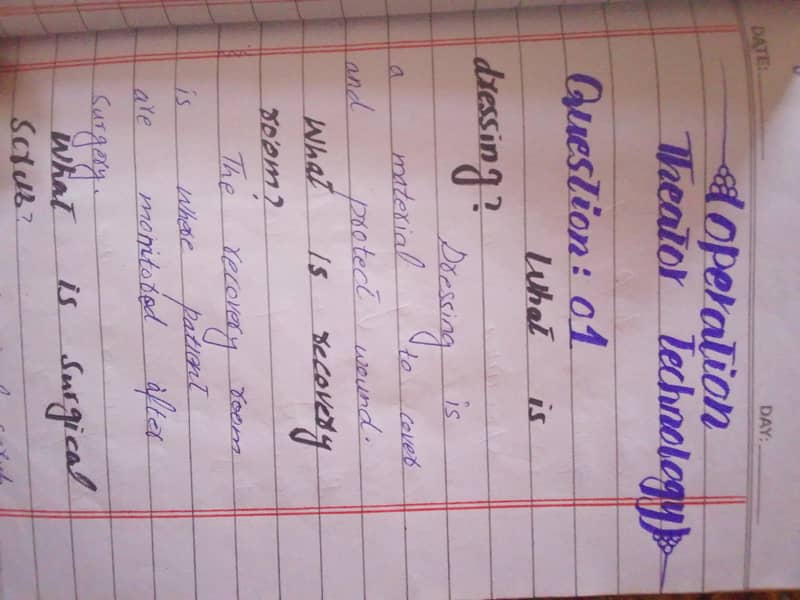 DATE:
DAY:
operation
Theator Technology
Question: 01
What is
dressing?
Dressing is
a material to cover
and protect wound.
What is recovery
room?
The recovery room
is where patient
are monitored after
surgery.
What is surgical
scrub?